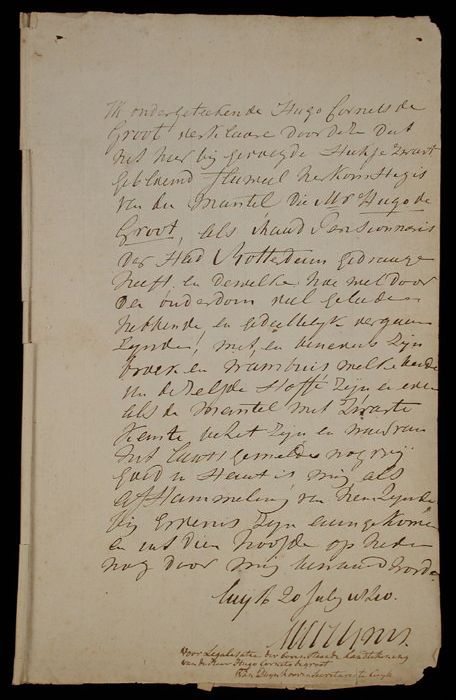 Ik ondergetekende Hugo Cornets de
Groot verklaare door deze dat
het hier bij gevoegde stukje zwart
gebloemd fluweel herkomstig is
van den mantel die Mr Hugo de
Groot, als Raad Pensionnaris
der stad Rotterdam gedraagen
heeft en dewelke hoe wel door
den ouderdom veel geleden
hebbende en gedeeltelyk vergaan
zynde, met en benevens zyn
broek en wambuis welke beide
van dezelfde stoffe zyn en even
als de mantel met zwarte
kant bezet zyn en waarvan
het laatstgemelde nog vry
goed in stant is mij als
afstammeling van Hem zynde
bij Erfenis zyn aangekomen
en uit dien hoofde op heden
nog door mij bewaard worden
Cuyk 20 July 1820.
Voor Legalisatie der bovenstaande handtekening
van den Heer Hugo Cornets de Groot
secretaris te Cuyk